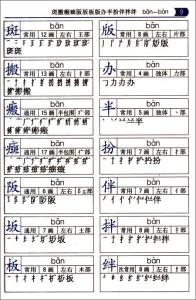 斑搬瘢癍阪坂板版办半扮伴拌绊 bān—bàn 9
bān
斑 常用 12画 左右 王部
bǎn
版 常用 8画 左右 片部
bān
搬 常用 13画 左右 扌部
bàn
办 常用 4画 独体 力部
bān
瘢 通用 15画 半包围 疒部
bàn
半 常用 5画 独体
bān
癍 通用 17画 半包围 疒部
bàn
扮 常用 7画 左右 扌部
bǎn
阪 通用 6画 左右 阝部
bàn
伴 常用 7画 左右 亻部
bǎn
坂 通用 7画 左右 土部
bàn
拌 常用 8画 左右 扌部
bǎn
板 常用 8画 左右 木部
bàn
绊 次常用 8画 左右 纟部